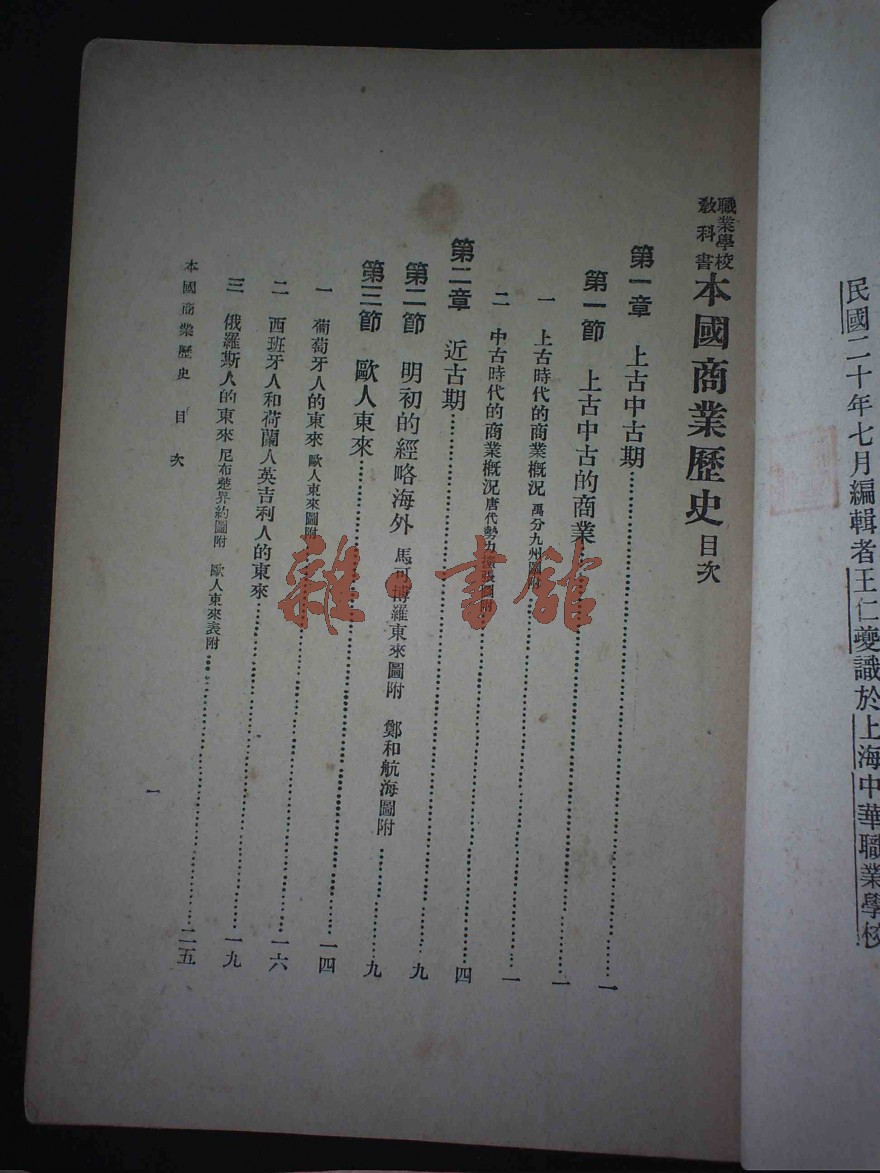 民國二十年七月編輯者王仁夔識於上海中華職業學校
職業學校教科書 本國商業歷史 目次
第一章 上古中古期……一
第一節 上古中古的商業……一
一 上古時代的商業概況 禹分九州圖附……一
二 中古時代的商業概況 唐代勢力擴張圖附……四
第二章 近古期……九
第二節 明初的經略海外 馬可博羅東來圖附 鄭和航海圖附……九
第三節 歐人東來……一四
一 葡萄牙人的東來 歐人東來圖附……一六
二 西班牙人和荷蘭人英吉利人的東來……一九
三 俄羅斯人的東來 尼布楚界約圖附 歐人東來表附……二五
本國商業歷史 目次
一
雜·書館